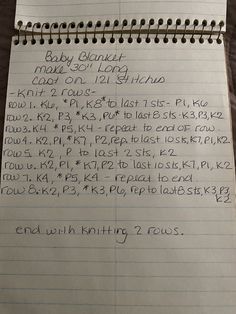 Baby Blanket
make 30" Long
cast on 121 stitches
-Knit 2 rows-
row 1. K6, *P1, K8* to last 7 sts- P1, K6
row 2. K2, P3, *K3, P6* to last 8 sts-K3, P3, K2
row 3. K4 *P5, K4 - repeat to end of row
row 4. K2, P1, *K7, P2, rep. to last 10 sts, K7, P1, K2
row 5. K2, P to last 2 sts, K2
row 6. K2, P1, *K7, P2 to last 10 sts, K7, P1, K2
row 7. K4, *P5, K4 - repeat to end
row 8. K2, P3, *K3, P6, rep to last 8 sts, K3, P3,
K2
end with knitting 2 rows.